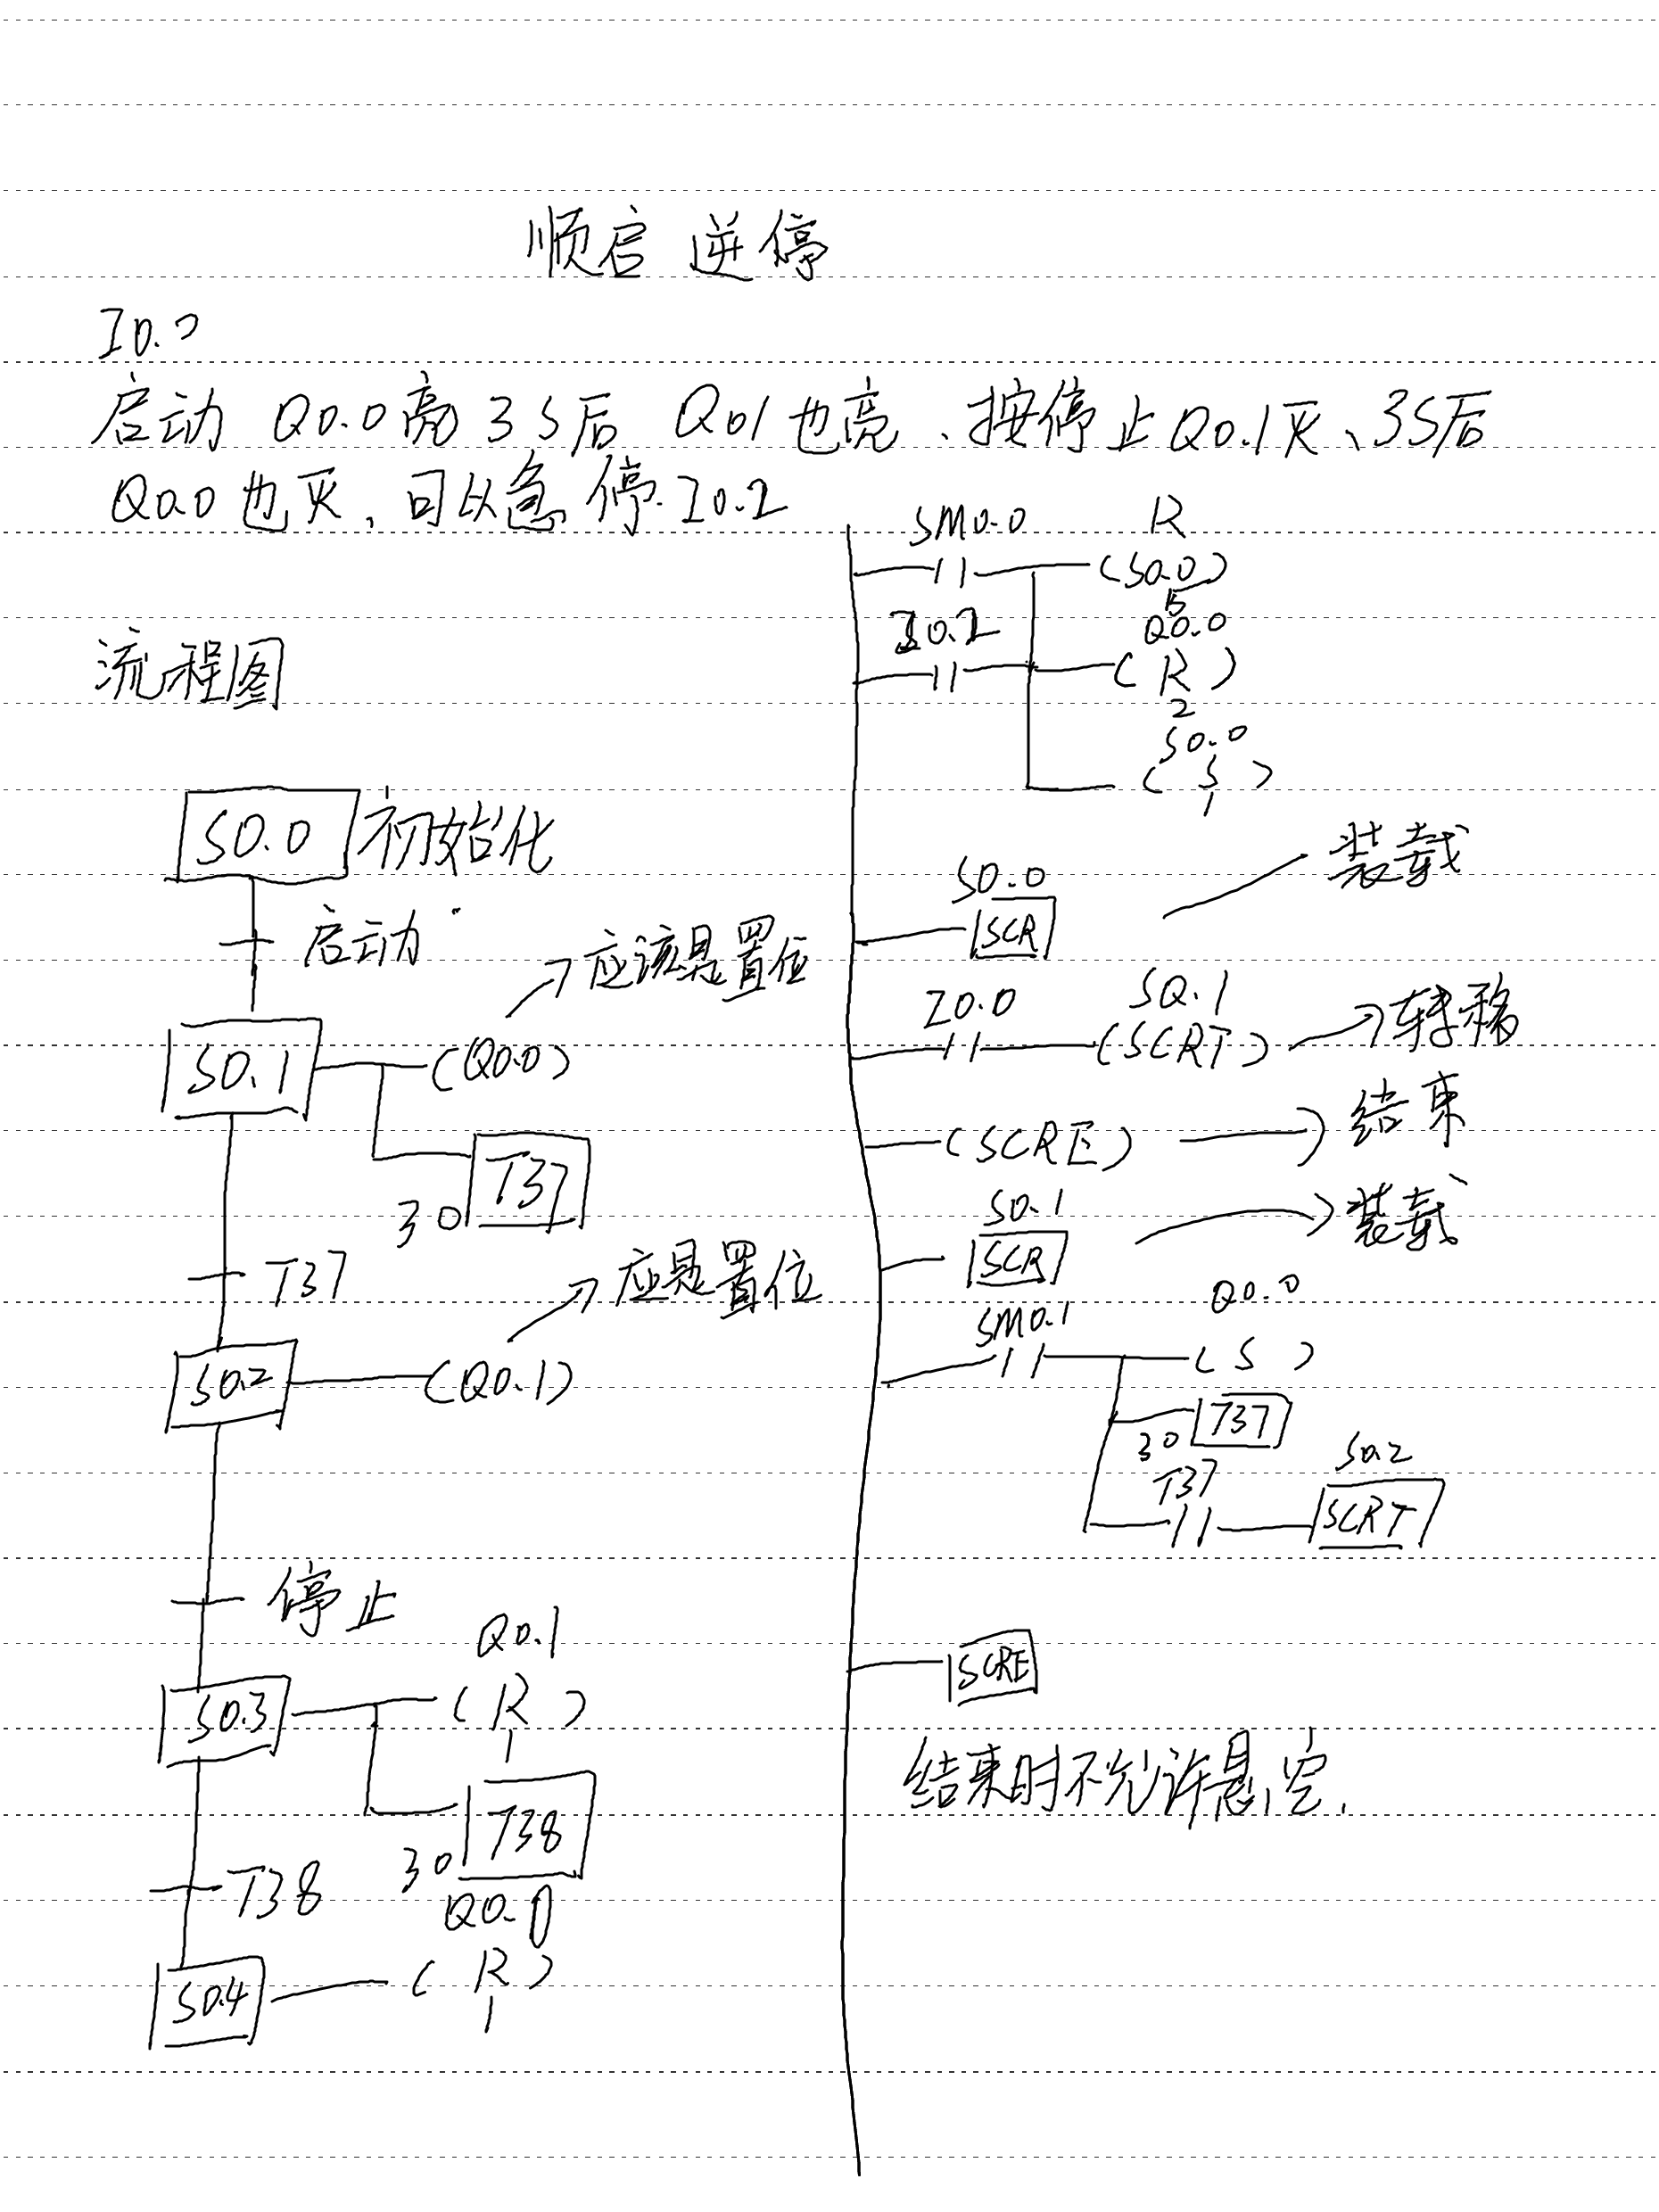 顺启 逆停
I0.0
启动 Q0.0亮 3S后 Q01也亮、按停止Q0.1灭、3S后
Q0.0也灭、可以急停.I0.2
流程图
S0.0 初始化
启动
应该是置位
S0.1 (Q0.0)
30 T37
T37
应是置位
S0.2 (Q0.1)
停止
Q0.1
S0.3 (R)
1
30 T38
T38
Q0.0
S0.4 (R)
1
SM0.0 R
(S0.0)
5
I0.2 Q0.0
(R)
2
S0.0
(S)
1
S0.0 装载
SCR
I0.0 S0.1
(SCRT) 转移
(SCRE) 结束
S0.1 装载
SCR
SM0.1 Q0.0
(S)
30 T37
T37 S0.2
SCRT
SCRE
结束时不允许悬空.